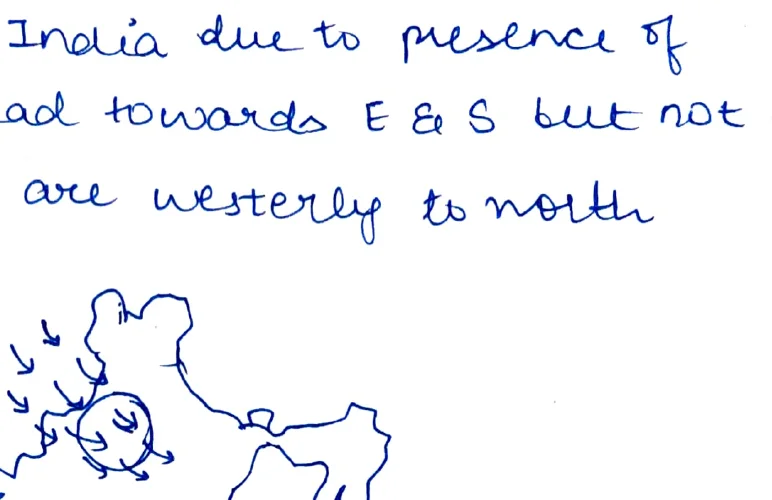 India due to presence of
ad towards E & S but not
are westerly to north